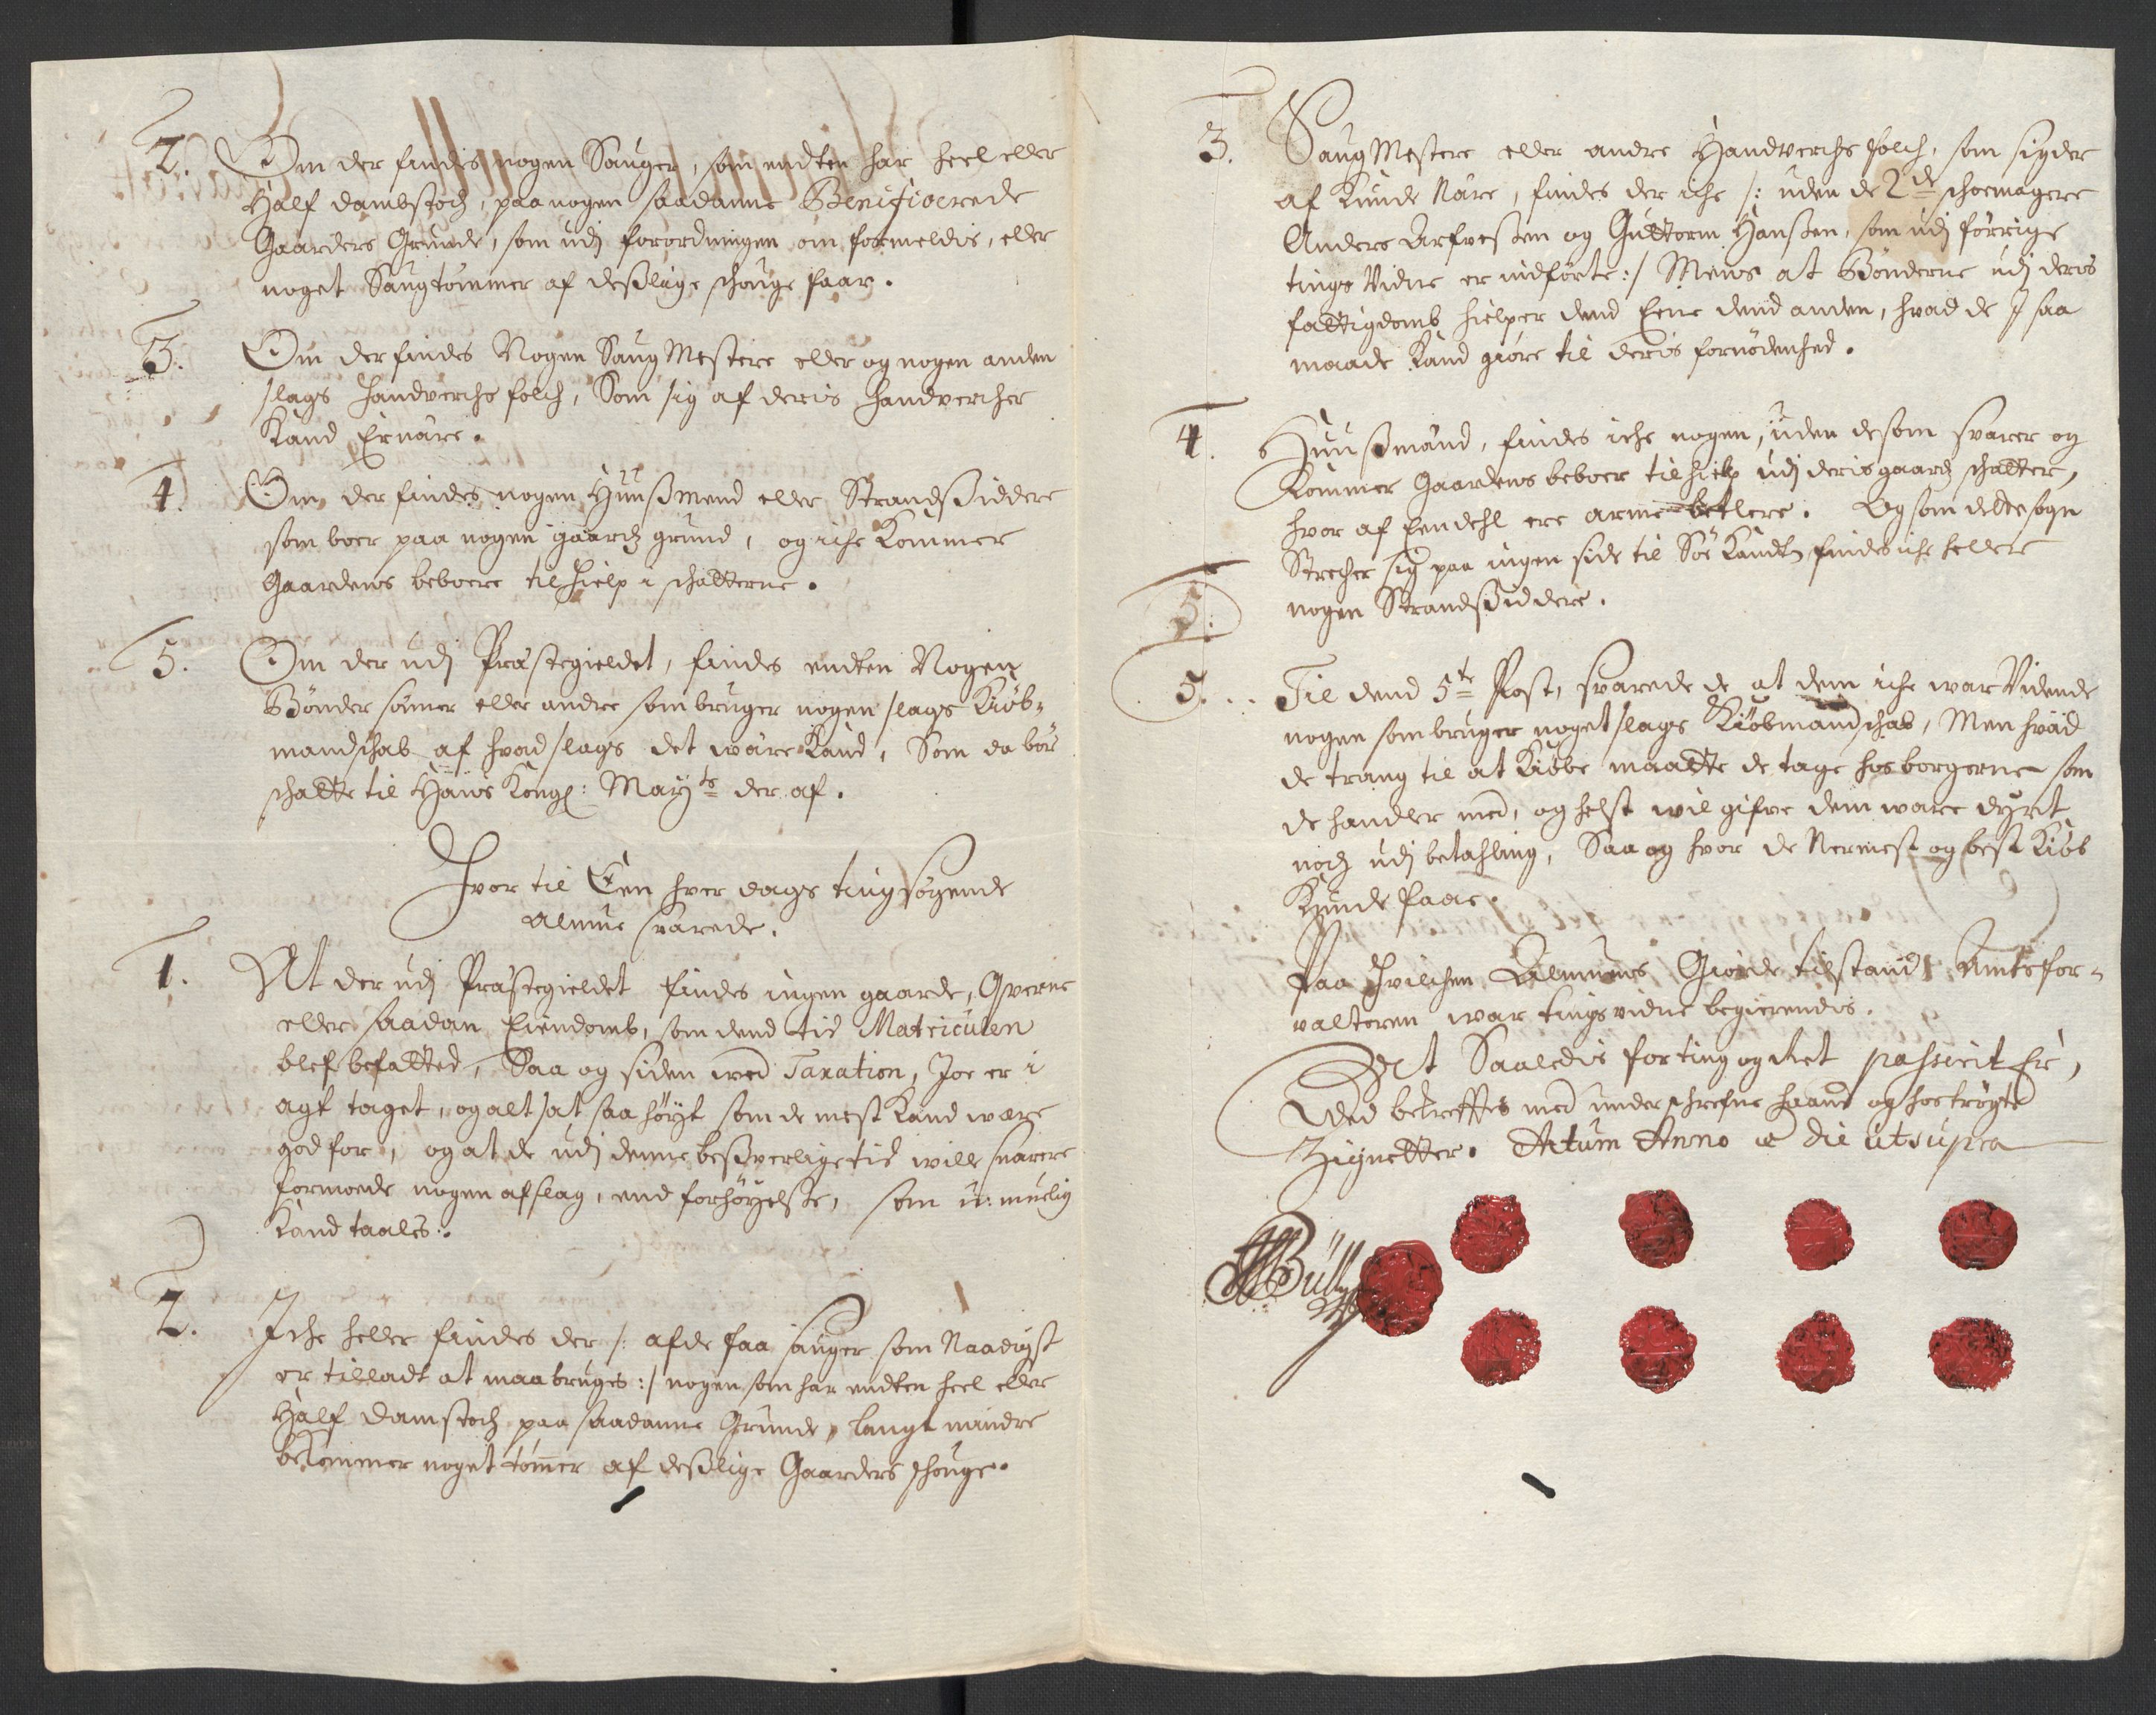 2. Om der findis nogen Sauger, som endten har heel eller
Half dambstoch, paa nogen saadanne Benificerede
Gaarders Grunde, som udj forordningen om formeldis, eller
noget Saugtømmer af deßlige schouge faar.
3. Om der findes Nogen Saug Mestere eller og nogen anden
slags handverchs folch, Som sig af deris handvercher
Kand Ernære.
4. Om der findes nogen Huußmend eller Strandsiddere
som boer paa nogen gaards grund, og iche Kommer
Gaardens beboere til hielp i schatterne.
5. Om der udj Præstegieldet, findes endten Nogen
Bønder sønner eller andre som bruger nogen slags Kiøb-
mandschab af hvad slags det være Kand, Som da bør
schatte til Hans Kongl: Mayts der af.
Hvor til Een hver dags tingsøgende
Almue svarede.
1. At der udj Præstegieldet findes ingen gaarde, Qverne
eller saadan Eiendomb, som dend tid Matriculen
blef befatted, Saa og siden ved Taxation, Joe er i
agt taget, og alt sat saa høyt som de mest Kand være
god for, og at de udj denne beßverlige tid wille snarere
formoede nogen afslag, end forhøyelse, som u:muelig
Kand taales.
2. Iche heller findes der /: af de faa sauger som Naadigst
er tilladt at maa bruges :/ nogen som har endten heel eller
Half damstoch paa saadanne Grunde, langt mindre
bekommer noget tømmer af deßlige Gaarders schouge.
3. Saug Mestere eller andre Handverchs folch, som sig der
af Kunde Nære, findes der iche /: uden de 2de schoemagere
Anders Arfveßen og Guttorm Hanßen, som udj forrige
tings Vidne er indførte :/ Mens at Bønderne udj deres
fattigdomb hielper dend Eene dend anden, hvad de J saa
maade Kand giøre til deris fornødenhed.
4. Huußmænd, findes iche nogen, uden de som svarer og
Kommer Gaardens beboer til hielp udj deris gaards schatter,
hvor af Een dehl ere arme betlere. Og som dette sogn
Strecher sig paa ingen side til Søe Kandten findes iche heller
5. nogen Strandsiddere.
5. Til dend 5te Post, svarede de at dem iche war Vidende
nogen som bruger noget slags Kiøbmandschab, Men hvad
de trang til at Kiøbe maatte de tage hos borgerne som
de handler med, og helst wil gifve dem ware dyrt
noch udj betahling, Saa og hvor de Nermest og best Kiøb
Kunde faae.
Paa hvilchen Almuens Giorde tilstand Amtsfor-
valteren war tings vidne begierendis.
Det Saaledis for ting og Ret passerit Er,
Ved betreffes med underschrefne haand og hostrøgte
Zignetter. Actum Anno & die ut supra